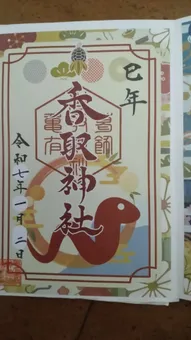 巳年
香取神社
亀有
令和七年一月二日